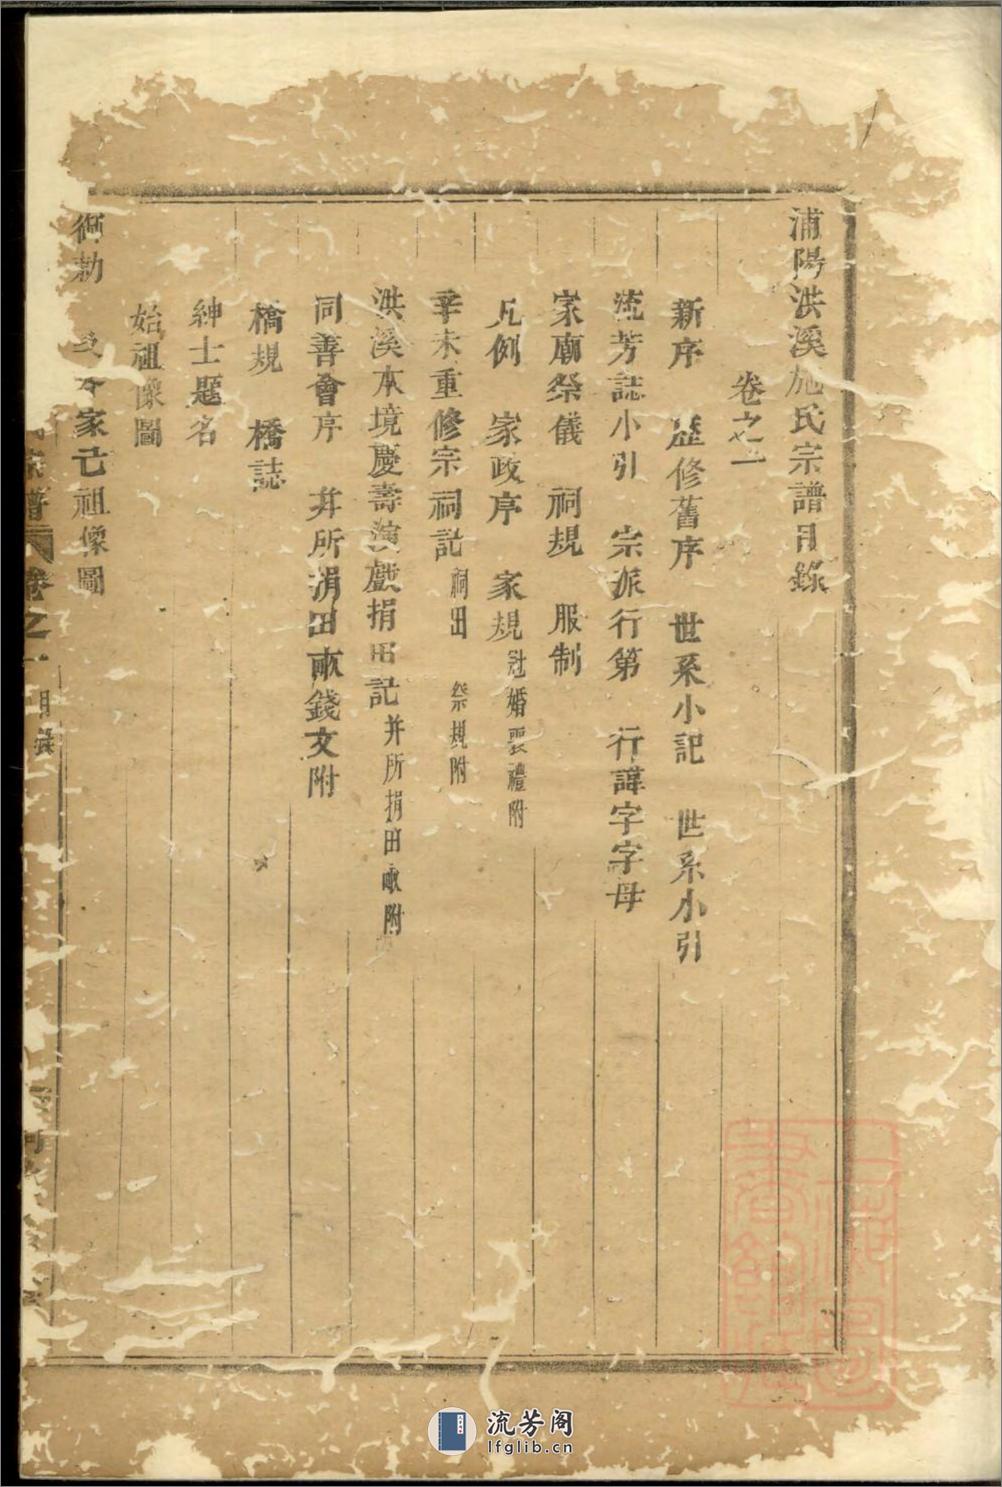 浦陽洪溪施氏宗譜目錄
卷之一
新序 歷修舊序 世系小記 世系小引
流芳誌小引 宗派行第 行諱字字母
家廟祭儀 祠規 服制
凡例 家政序 家規 冠婚喪禮附
辛未重修宗祠記 祠田 祭規附
洪溪本境慶壽演戲捐田記 并所捐田畝附
同善會序 并所捐田畝錢文附
橋規 橋誌
紳士題名
始祖像圖
家已祖像圖
宗譜 卷之一 目錄
流芳阁
lfglib.cn